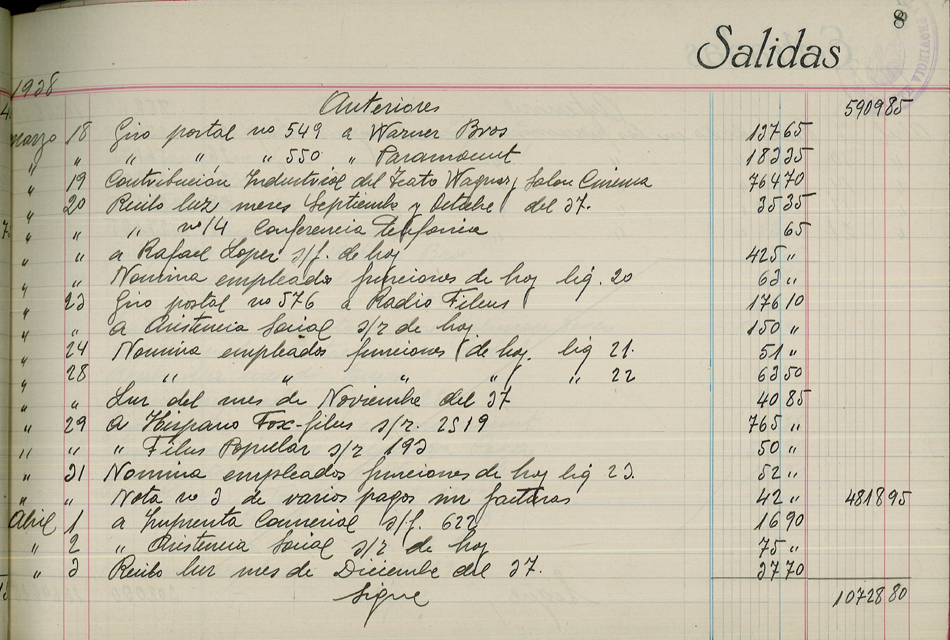 8
Salidas
1938
Anteriores 590985
Marzo 18 Giro postal nº 549 a Warner Bros 13765
" " " " " 550 " Paramount 18335
" 19 Contribución Industrial del Teatro Wagner y Salon Cinema 76470
" 20 Recibo luz meses Septiembre y Octubre del 37. 3535
" " " nº 14 Conferencia telefonica 65
" " a Rafael Lopez s/f. de hoy 425 "
" " Nomina empleados funciones de hoy liq. 20 63 "
" 23 Giro postal nº 576 a Radio Films 17610
" " a Asistencia Social s/r de hoy 150 "
" 24 Nomina empleados funciones de hoy. liq 21. 51 "
" 28 " " " " " 22 6350
" " Luz del mes de Noviembre del 37 4085
" 29 a Hispano Fox-films s/r. 2519 765 "
" " " Films Popular s/r 193 50 "
" 31 Nomina empleados funciones de hoy liq 23. 52 "
" " Nota nº 3 de varios pagos sin facturas 42 " 481895
Abril 1 a Imprenta Comercial s/f. 622 1690
" 2 " Asistencia Social s/r de hoy 75 "
" 3 Recibo luz mes de Diciembre del 37. 3770
Sigue 1072880